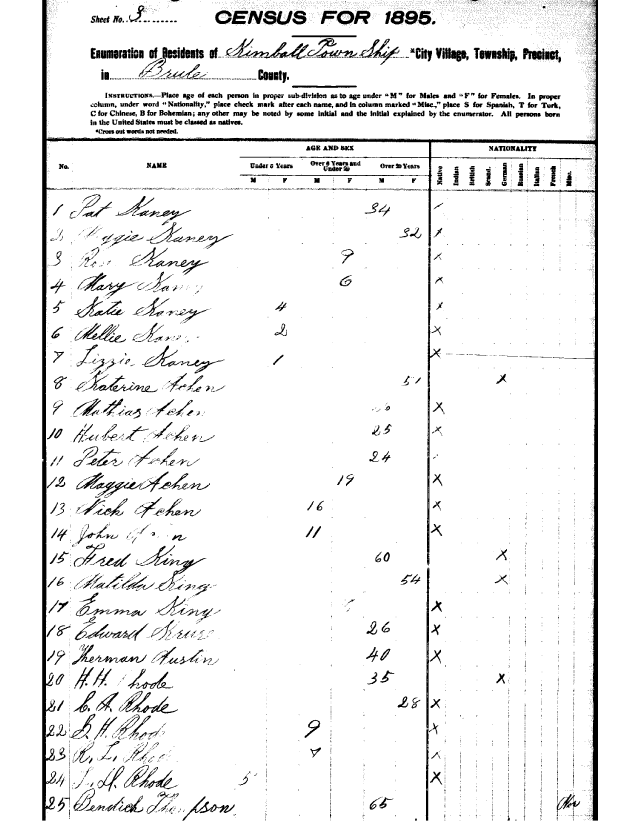 Sheet No. 3
CENSUS FOR 1895.
Enumeration of Residents of Kimball Town Ship *City Village, Township, Precinct,
in Brule County.
INSTRUCTIONS.—Place age of each person in proper sub-division as to age under "M" for Males and "F" for Females. In proper
column, under word "Nationality," place check mark after each name, and in column marked "Misc.," place S for Spanish, T for Turk,
C for Chinese, B for Bohemian; any other may be noted by some initial and the initial explained by the enumerator. All persons born
in the United States must be classed as natives.
*Cross out words not needed.
AGE AND SEX NATIONALITY
No. NAME Under 5 Years Over 5 Years and Under 20 Over 20 Years Native Indian British Scand. German Russian Italian French Misc.
M F M F M F
1 Pat Kaney 34 x
2 Maggie Kaney 32 x
3 Rose Kaney 9 x
4 Mary Kaney 6 x
5 Katie Kaney 4 x
6 Mellie Kaney 2 x
7 Lizzie Kaney 1 x
8 Katerine Achen 51 x
9 Mathias Achen x
10 Hubert Achen 25 x
11 Peter Achen 24
12 Maggie Achen 19 x
13 Nick Achen 16 x
14 John 11 x
15 Fred King 60 x
16 Matilda King 54 x
17 Emma King x
18 Edward 26 x
19 Therman Austin 40 x
20 H. H. Rhode 35 x
21 C. A. Rhode 28 x
22 G. H. Rhode 9 x
23 R. L. Rhode 7 x
24 H. Rhode 5 x
25 Bendick Thompson 65 Nor